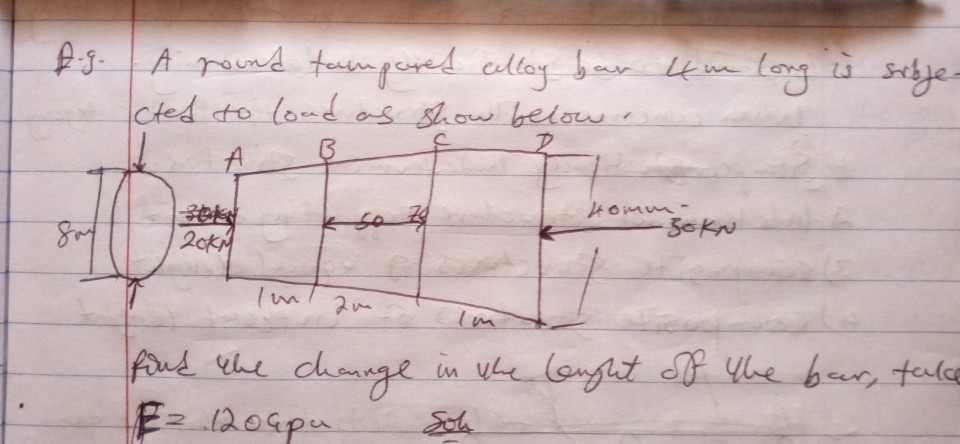 E.g. A round tampared alloy bar 4m long is subje-
cted to load as show below.
A B C D
30KN
20KN
50
75
40mm
30KN
8m
1m 2m 1m
find the change in the lenght of the bar, take
E = 120Gpa Soln